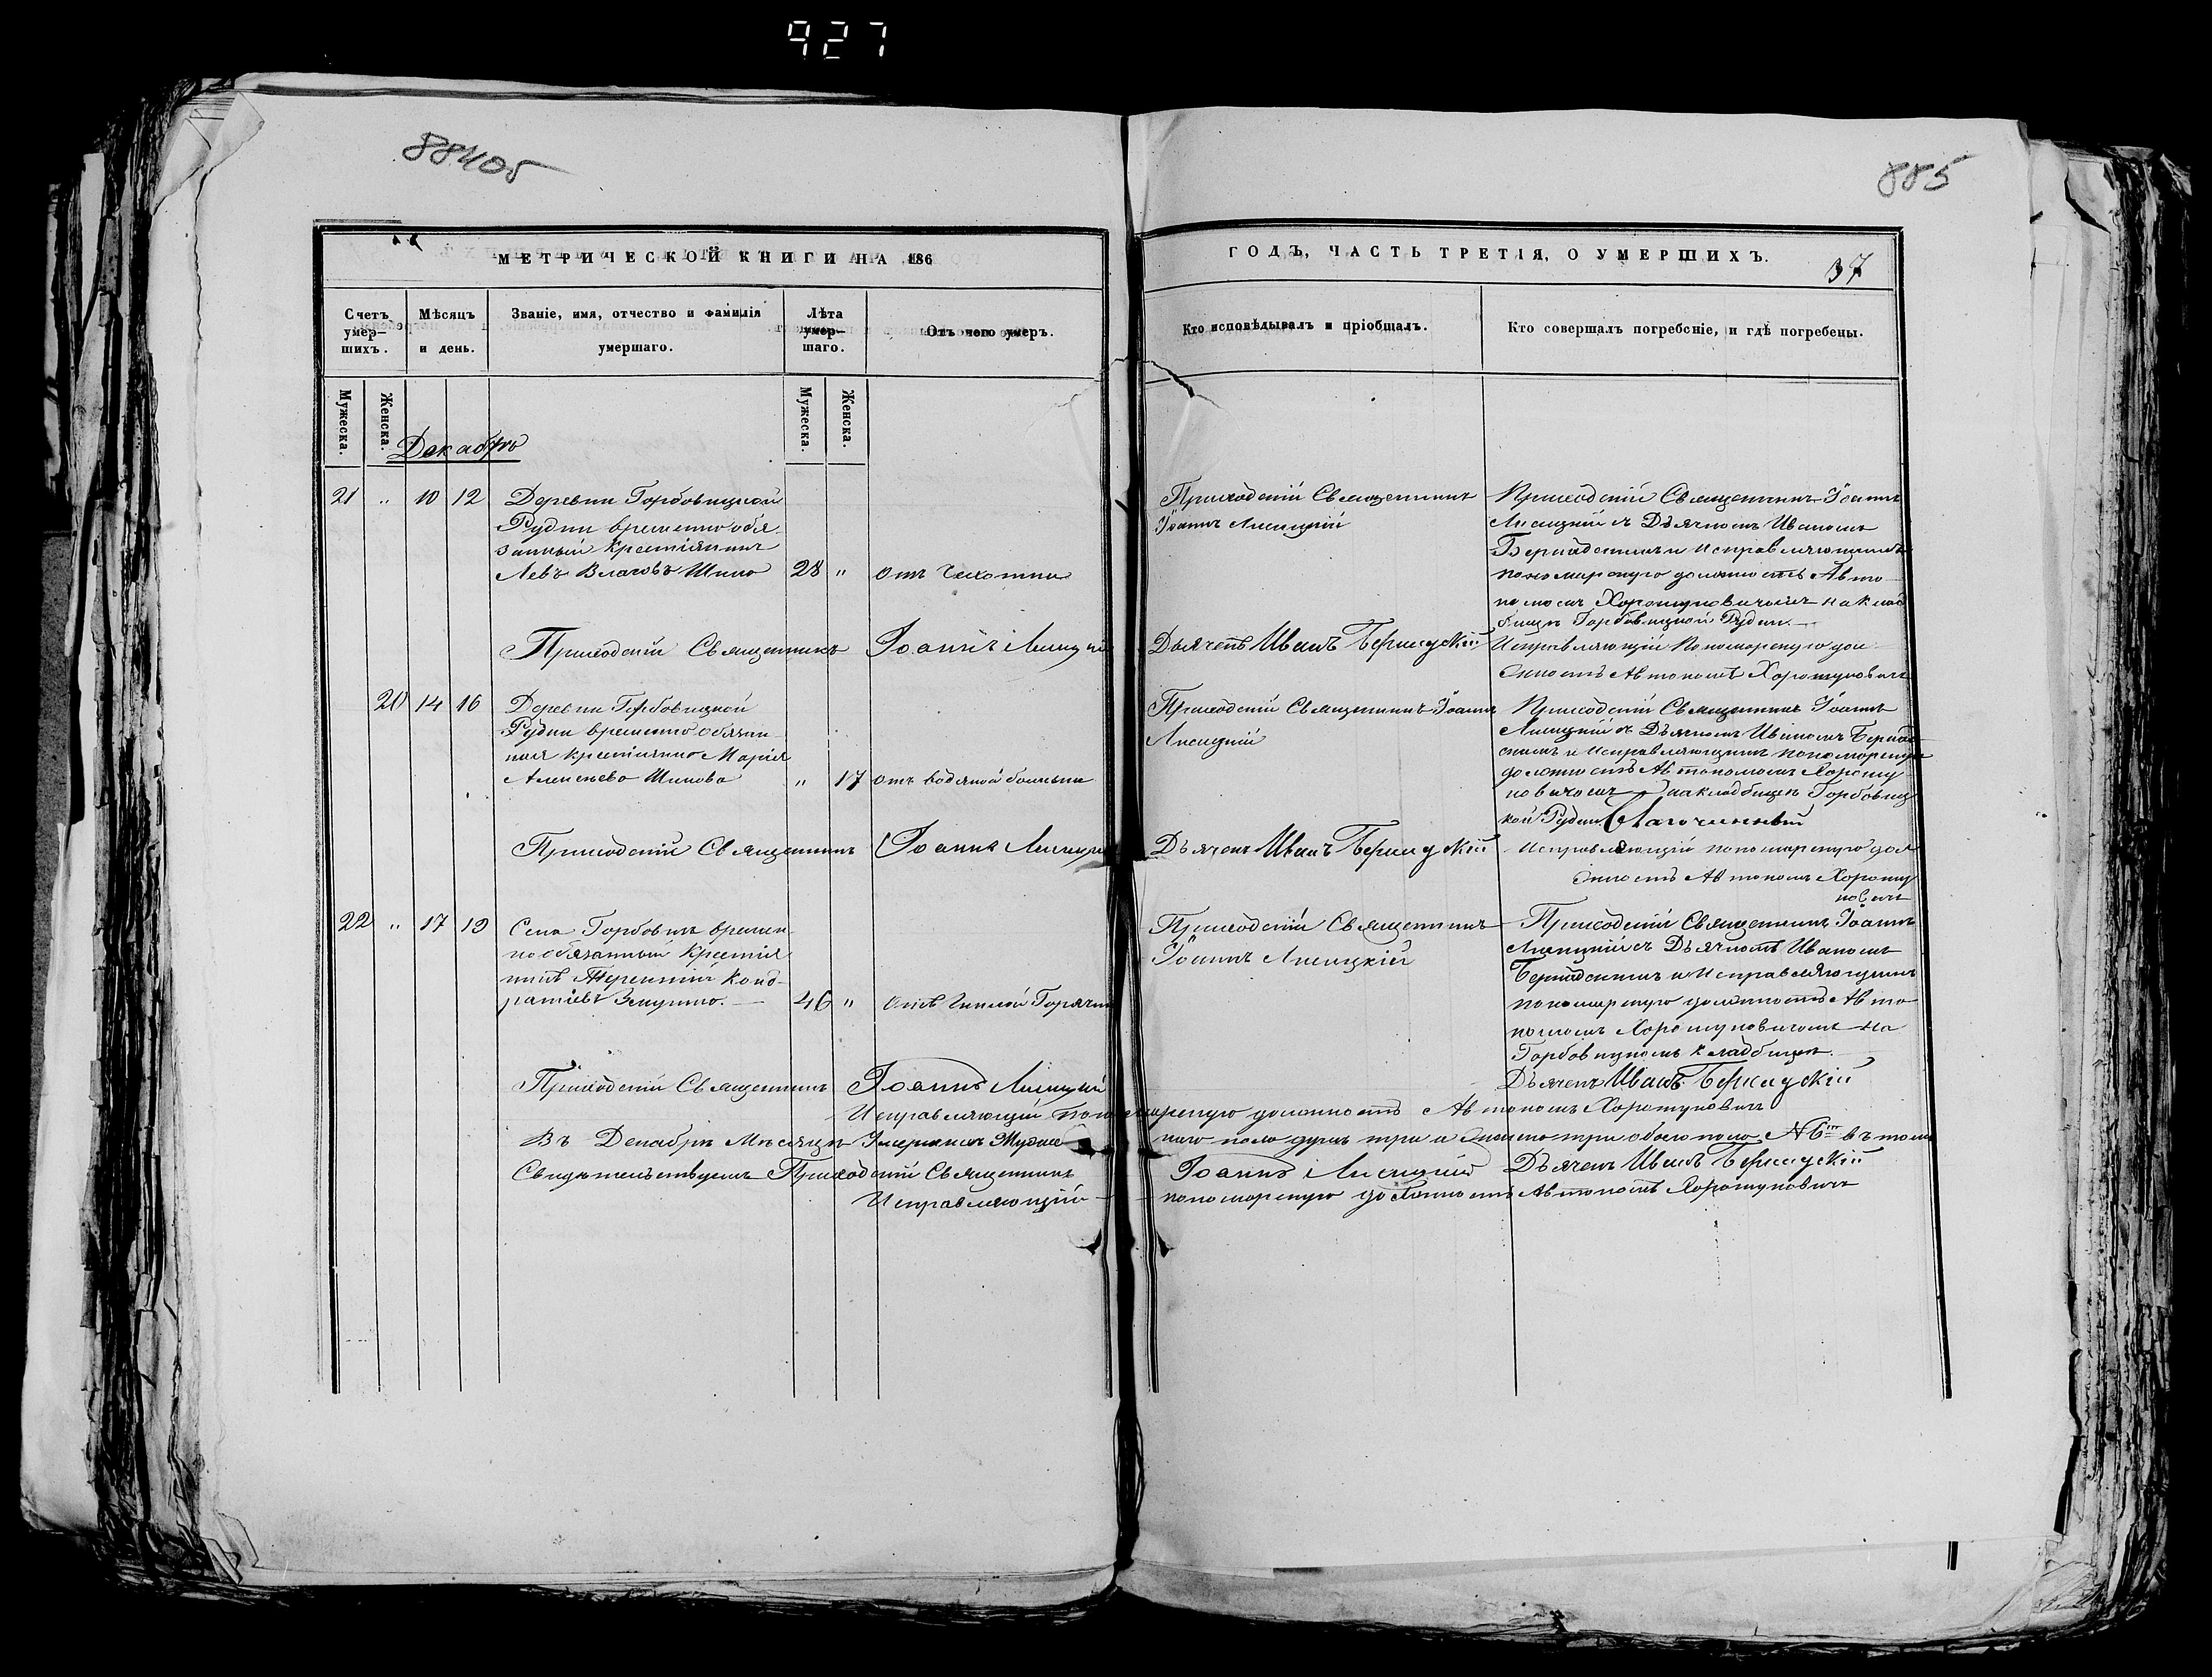 927
88405
885
МЕТРИЧЕСКОЙ КНИГИ НА 186
ГОДЪ, ЧАСТЬ ТРЕТІЯ, О УМЕРШИХЪ.
37
Счетъ умер-шихъ.
Мѣсяцъ и день.
Званіе, имя, отчество и фамилія умершаго.
Лѣта умер-шаго.
Отъ чего умеръ.
Кто исповѣдывалъ и пріобщалъ.
Кто совершалъ погребеніе, и гдѣ погребены.
Мужеска.
Женска.
Мужеска.
Женска.
Декабрь
21 " 10 12 Деревни Горбовицкой
Рудни временно обя-
занный крестіянинъ
Левъ Шило 28 " отъ чахотки
Приходскій Священникъ
Іоаннъ Лисицкій
Приходскій Священникъ Іоаннъ
Лисицкій съ Дьячкомъ Иваномъ
и исправляющимъ
пономарскую должность Авто-
номомъ Хорошуновичомъ на клад
бищѣ Горбовицкой Рудни.
Приходскій Священникъ Іоаннъ Лисицкій
Дьячекъ Иванъ
Исправляющій Пономарскую дол
жность Автономъ Хорошуновичъ
20 14 16 Деревни Горбовицкой
Рудни временно обязан-
ная крестіянка Марія
Алексѣева Шилова " 17 отъ водяной болѣзни
Приходскій Священникъ Іоаннъ
Лисицкій
Приходскій Священникъ Іоаннъ
Лисицкій съ Дьячкомъ Иваномъ
и исправляющимъ пономарскую
должность Автономомъ Хорошу
новичомъ на кладбищѣ Горбовиц
кой Рудни
Приходскій Священникъ Іоаннъ Лисицкій
Дьячекъ Иванъ
Исправляющій пономарскую дол
жность Автономъ Хорошу
новичъ
22 " 17 19 Села Горбовичъ времен-
но обязанный Крестія
нинъ Терентій Конд-
ратіевъ 46 " Отъ Гнилой Горячки
Приходскій Священникъ
Іоаннъ Лисицкій
Приходскій Священникъ Іоаннъ
Лисицкій съ Дьячкомъ Иваномъ
и Исправляющимъ
пономарскую должность Авто
номомъ Хорошуновичомъ на
Горбовицкомъ кладбищѣ.
Приходскій Священникъ Іоаннъ Лисицкій
Дьячекъ Иванъ
Исправляющій пономарскую должность Автономъ Хорошуновичъ
Въ Декабрѣ Мѣсяцѣ Умершихъ Мужес наго пола душъ три и обоего пола № 6 въ томъ
Свидѣтельствуемъ Приходскій Священникъ Іоаннъ Лисицкій Дьячекъ Иванъ
Исправляющій пономарскую должность Автономъ Хорошуновичъ